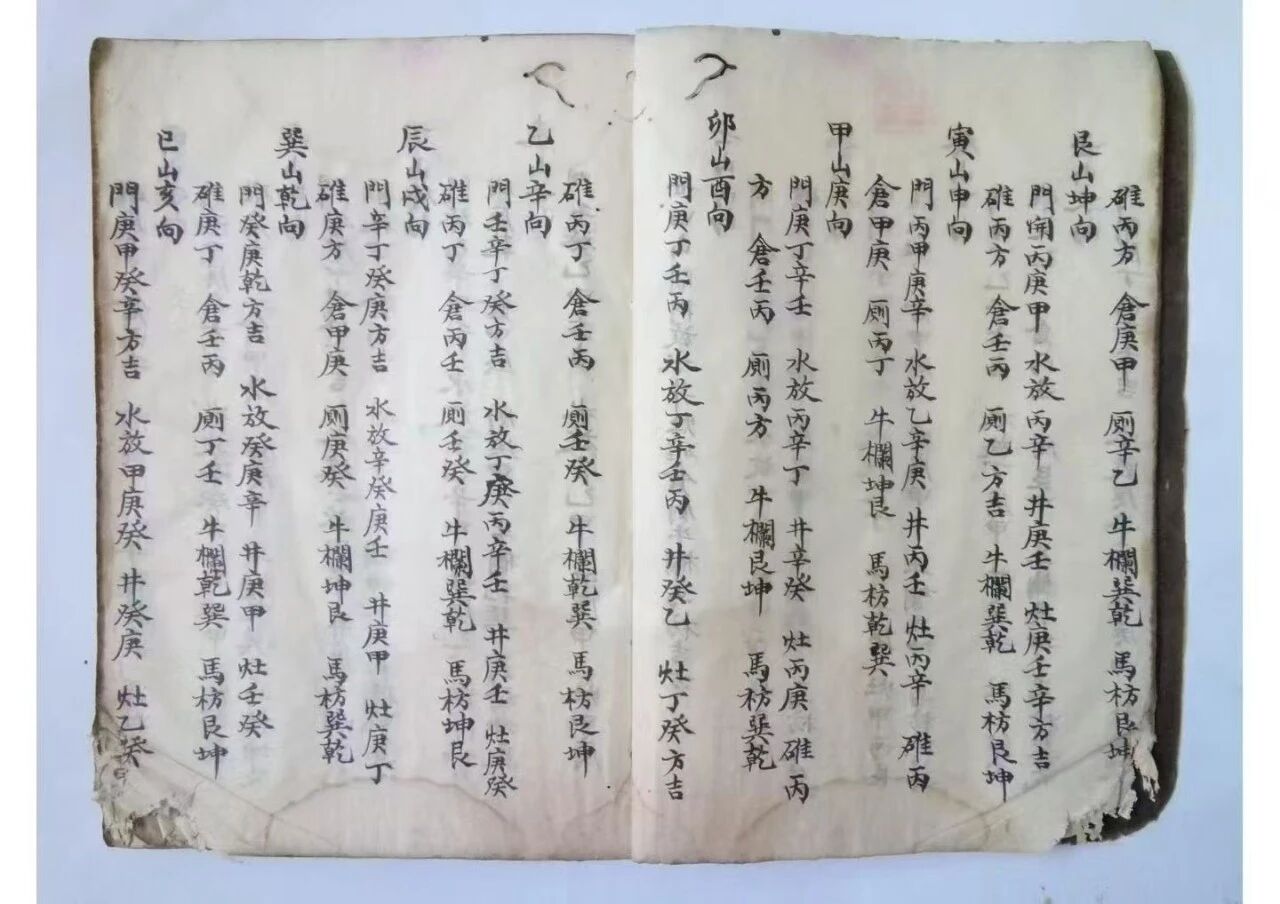 碓丙方 倉庚甲 厠辛乙 牛欄巽乾 馬枋艮坤
艮山坤向
門開丙庚甲 水放丙辛 井庚壬 灶庚壬辛方吉
碓丙方 倉壬丙 厠乙方吉 牛欄巽乾 馬枋艮坤
寅山申向
門丙甲庚辛 水放乙辛庚 井丙壬 灶丙辛 碓丙
倉甲庚 厠丙丁 牛欄坤艮 馬枋乾巽
甲山庚向
門庚丁辛壬 水放丙辛丁 井辛癸 灶丙庚 碓丙
方 倉壬丙 厠丙方 牛欄艮坤 馬枋巽乾
卯山酉向
門庚丁壬丙 水放丁辛壬丙 井癸乙 灶丁癸方吉
碓丙丁 倉壬丙 厠壬癸 牛欄乾巽 馬枋艮坤
乙山辛向
門壬辛丁癸方吉 水放丁庚丙辛壬 井庚壬 灶庚癸
碓丙丁 倉丙壬 厠壬癸 牛欄巽乾 馬枋坤艮
辰山戍向
門辛丁癸庚方吉 水放辛癸庚壬 井庚甲 灶庚丁
碓庚方 倉甲庚 厠庚癸 牛欄坤艮 馬枋巽乾
巽山乾向
門癸庚乾方吉 水放癸庚辛 井庚甲 灶壬癸
碓庚丁 倉壬丙 厠丁壬 牛欄乾巽 馬枋艮坤
巳山亥向
門庚甲癸辛方吉 水放甲庚癸 井癸庚 灶乙癸